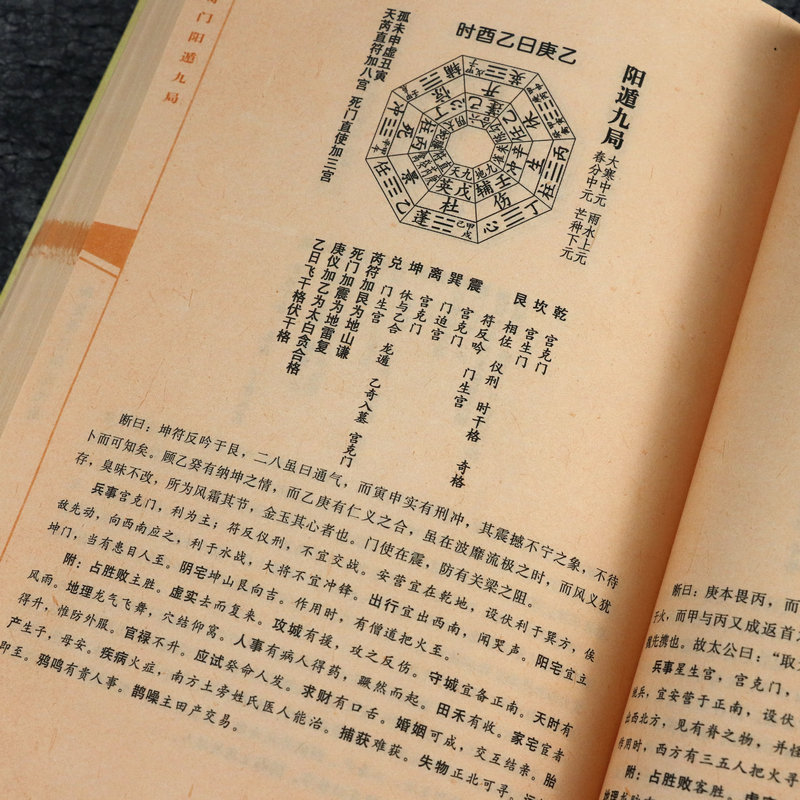 门阳遁九局
阳遁九局
大寒中元 雨水上元
春分中元 芒种下元
乙庚日乙酉时
孤未申虚丑寅
天芮直符加八宫 死门直使加三宫
英
开
休
生
伤
杜
景
死
辅
冲
蓬
心
柱
丙
丁
乙
戊
九天
九地
乾 宫克门
坎 宫生门
艮 相佐 仪刑 时干格 奇格
符反吟 门生宫
震 宫克门
巽 门迫宫
离 宫克门
坤 休与乙合 龙遁 乙奇入墓 宫克门
兑 门生宫
芮符加艮为地山谦
死门加震为地雷复
庚仪加乙为太白贪合格
乙日飞干格伏干格
断曰：坤符反吟于艮，二八虽曰通气，而寅申实有刑冲，其震撼不宁之象，不待
卜而可知矣。顾乙癸有纳坤之情，而乙庚有仁义之合，虽在波靡流极之时，而风义犹
存，臭味不改，所为风霜其节，金玉其心者也。门使在震，防有关梁之阻。
兵事宫克门，利为主；符反仪刑，不宜交战。安营宜在乾地，设伏利于巽方，俟
敌先动，向西南应之，利于水战，大将不宜冲锋。出行宜出西南，闻哭声。阳宅宜立
坤门，当有患目人至。阴宅坤山艮向吉。作用时，有僧道把火至。
附：占胜败主胜。虚实去而复来。攻城有援，攻之反伤。守城宜备正南。天时有
风雨。地理龙气飞舞，穴结仰窝。人事有病人得药，蹶然而起。田禾有收。家宅宦者
得升，惟防外服。官禄不升。应试癸命人发。求财有口舌。婚姻可成，交互结亲。胎
产生子，母安。疾病火症，南方土旁姓氏医人能治。捕获难获。失物正北可寻。
即至。鸦鸣有贵人事。鹊噪主田产交易。
断曰：庚本畏丙，而
于火，而甲与丙又成返首
也。故太公曰：“取
兵事星生宫，宫克门，
兵，宜安营于正南，设伏
出西北方，见有脊之物，并怪
作用时，西方有三五人把火寻
附：占胜败客胜。